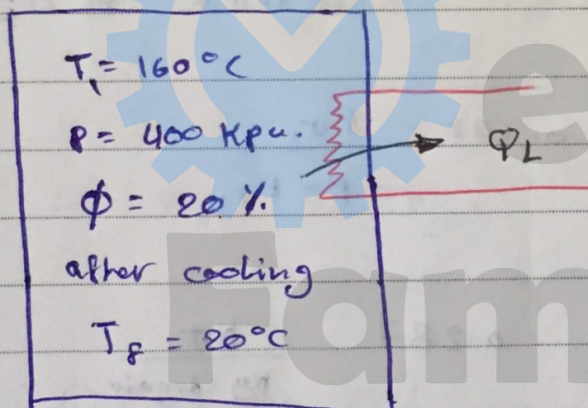 T₁ = 160°C
P = 400 Kpa.
φ = 20 %
QL
after cooling
Tf = 20°C
e
Fam